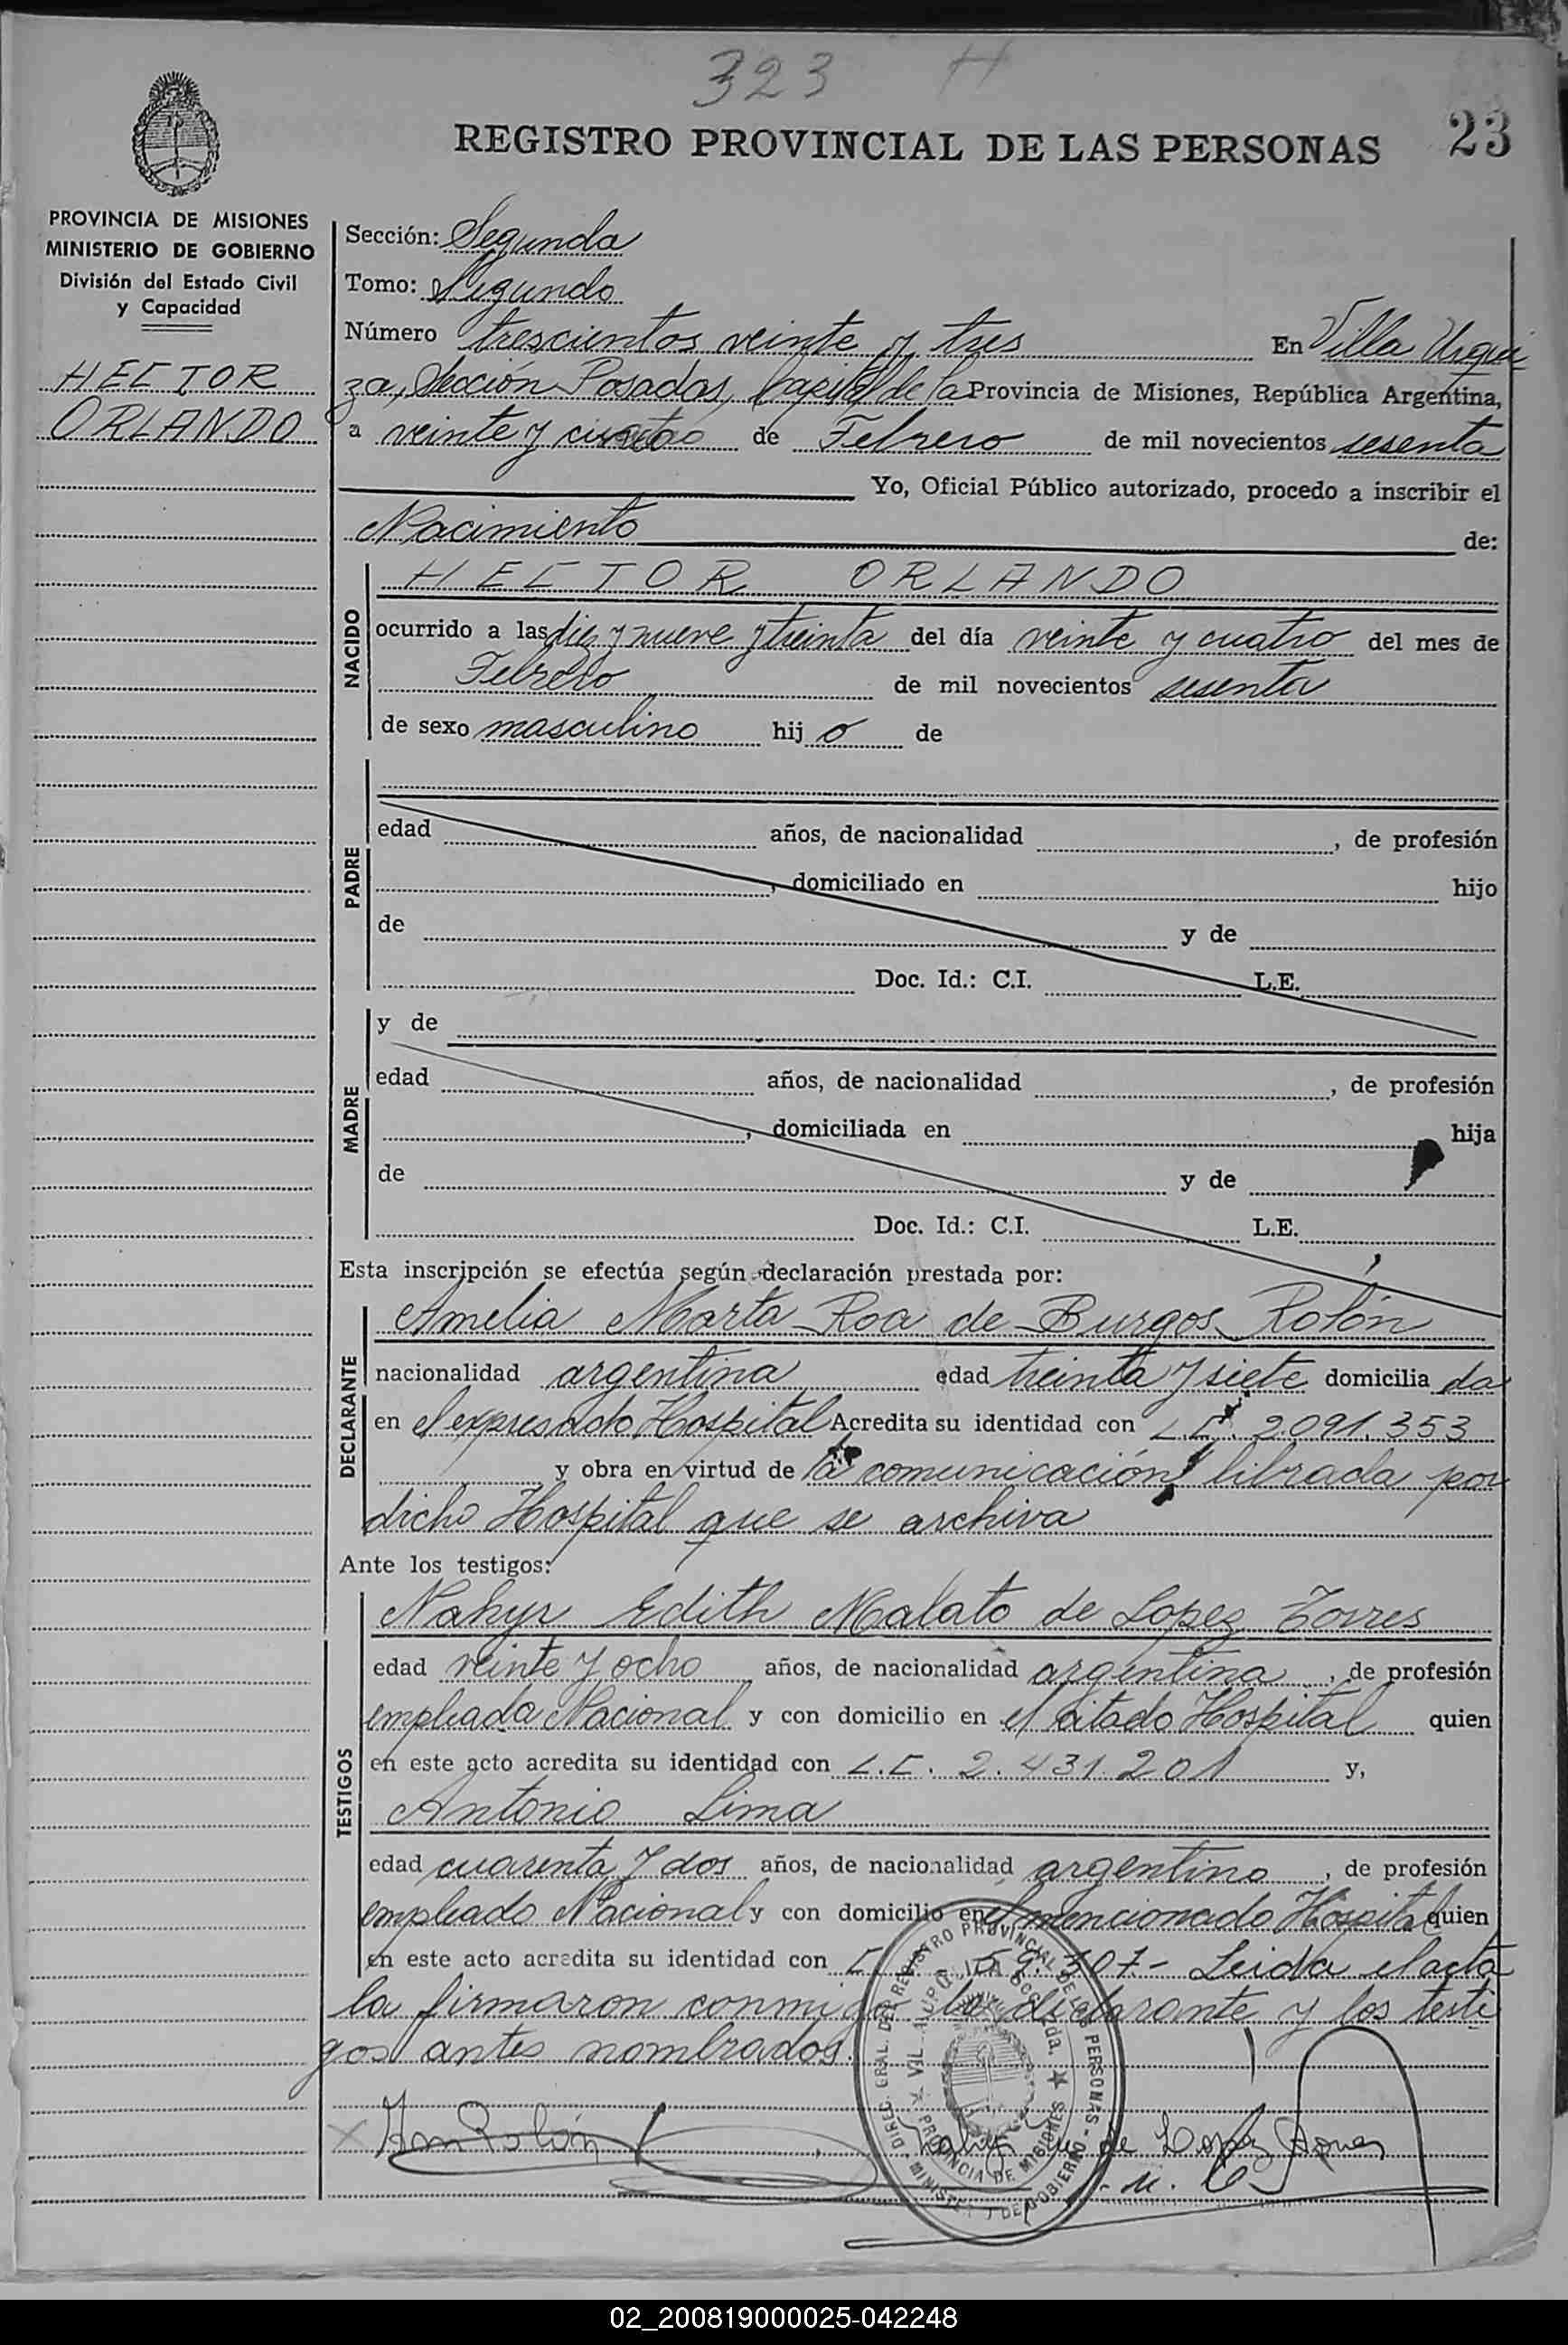 323 H
REGISTRO PROVINCIAL DE LAS PERSONAS 23
PROVINCIA DE MISIONES
MINISTERIO DE GOBIERNO
División del Estado Civil
y Capacidad
HECTOR
ORLANDO
Sección: Segunda
Tomo: Segundo
Número trescientos veinte y tres En Villa Urqui
za, Sección Posadas, Capital de la Provincia de Misiones, República Argentina,
a veinte y de Febrero de mil novecientos sesenta
Yo, Oficial Público autorizado, procedo a inscribir el
Nacimiento de:
NACIDO
HECTOR ORLANDO
ocurrido a las diez y nueve y treinta del día veinte y cuatro del mes de
Febrero de mil novecientos sesenta
de sexo masculino hijo de
PADRE
edad años, de nacionalidad , de profesión
, domiciliado en hijo
de y de
Doc. Id.: C.I. L.E.
MADRE
y de
edad años, de nacionalidad , de profesión
, domiciliada en hija
de y de
Doc. Id.: C.I. L.E.
Esta inscripción se efectúa según declaración prestada por:
DECLARANTE
Amelia Marta Roa de Burgos Rolón
nacionalidad argentina edad treinta y siete domiciliada
en el expresado Hospital Acredita su identidad con L.C. 2.091.353
y obra en virtud de la comunicación librada por
dicho Hospital que se archiva
Ante los testigos:
TESTIGOS
Nahyr Edith Malato de Lopez Torres
edad veinte y ocho años, de nacionalidad argentina , de profesión
empleada Nacional y con domicilio en el citado Hospital quien
en este acto acredita su identidad con L.C. 2.431.201 y,
Antonio Lima
edad cuarenta y dos años, de nacionalidad argentino , de profesión
empleado Nacional y con domicilio en el mencionado Hospital quien
en este acto acredita su identidad con 307- Leida el acta
la firmaron conmigo la declarante y los testi
gos antes nombrados.
DIREC. GRAL. DEL REGISTRO PROVINCIAL DE LAS PERSONAS - MINISTERIO DE GOBIERNO -
PROVINCIA DE MISIONES
Rolón
de Lopez Torres
02_200819000025-042248